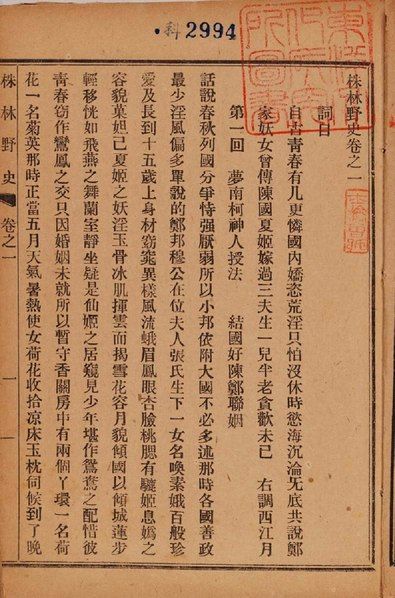 科 2994
株林野史卷之一
詞曰
自古青春有几更憐國內嬌恣荒淫只怕沒休時慾海沉淪无底共說鄭
家妖女曾傳陳國夏姬嫁過三夫生一兒半老貪歡未已　右調西江月
第一回　夢南柯神人授法　結國好陳鄭聯姻
話說春秋列國分爭恃强厭弱所以小邦依附大國不必多述那時各國善政
最少淫風偏多單說的鄭邦穆公在位夫人張氏生下一女名喚素娥百般珍
愛及長到十五歲上身材窈窕異樣風流蛾眉鳳眼杏臉桃腮有驪姬息嬀之
容貌菓妲己夏姬之妖淫玉骨冰肌揮雲而揭雪花容月貌傾國以傾城蓮步
輕移恍如飛燕之舞蘭室靜坐疑是仙姬之居窺見少年堪作鴛鴦之配惜彼
靑春窃作鸞鳳之交只因婚姻未就所以暫守香閨房中有兩個丫環一名荷
花一名菊英那時正當五月天氣暑熱使女荷花收拾凉床玉枕伺候到了晚
株林野史　卷之一　一